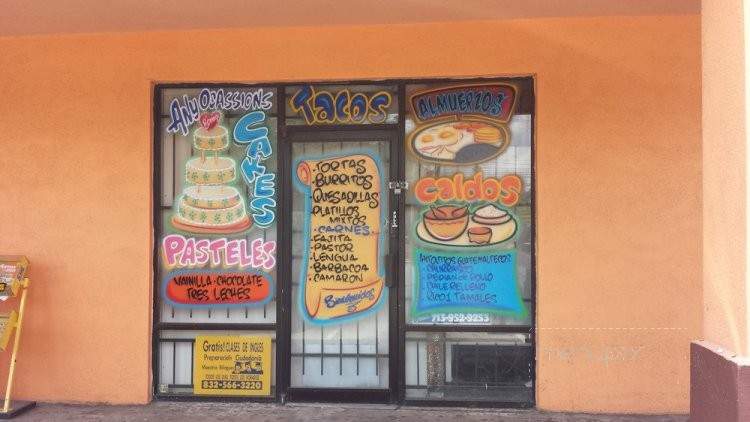 ANY OCASSIONS
CAKES
PASTELES
VAINILLA - CHOCOLATE
TRES LECHES
Gratis! CLASES DE INGLES
Preparacich Ciudadania
Maestra Bilingue
832-566-3220
Tacos
- TORTAS
- BURRITOS
- QUESADILLAS
- PLATILLOS
MIXTOS
- CARNES -
- FAJITA
- PASTOR
- LENGUA
- BARBACOA
- CAMARON
Bienvenidos
ALMUERZOS
Caldos
ANTOJITOS GUATEMALTECOS
- CHURRASCO
- PEPIAN DE POLLO
- CHILE RELLENO
- RICOS TAMALES
713-952-9253